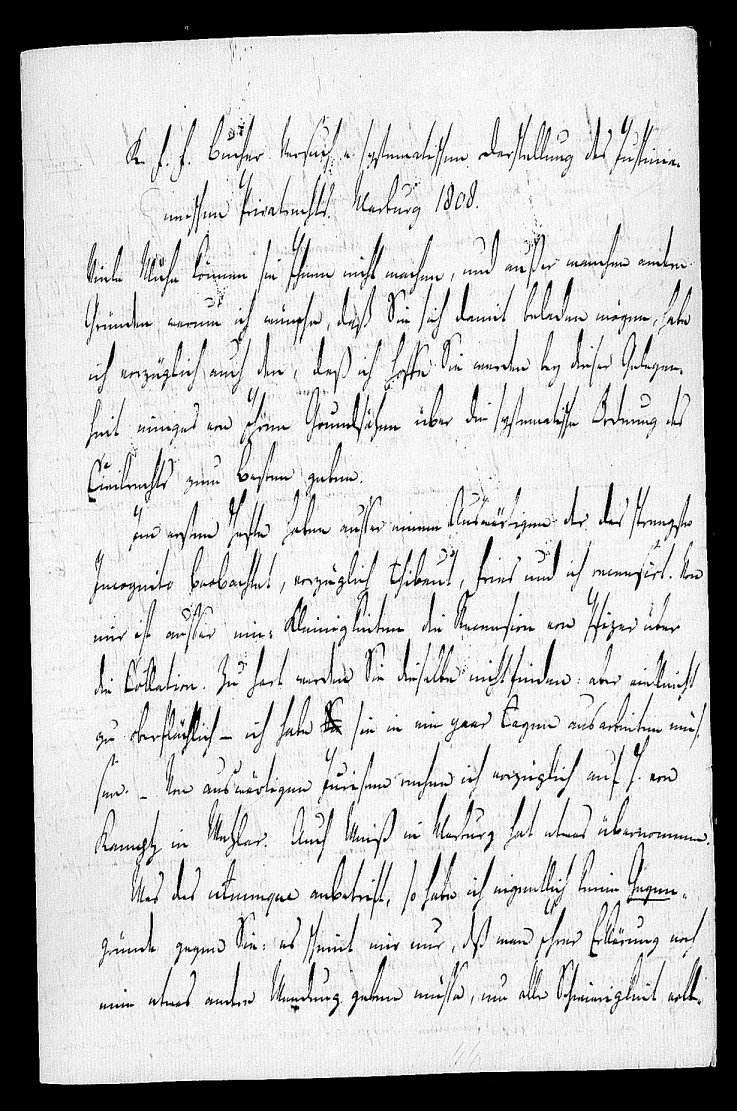 K. F. F. Bucher Versuch e. systematischen Darstellung des Justinia-
neischen Privatrechts. Marburg 1808.
Viele Mühe können sie Ihnen nicht machen, und außer manchen andern
Gründen warum ich wünsche, daß Sie sich damit beladen mögen, habe
ich vorzüglich auch den, daß ich hoffe Sie werden bey dieser Gelegen-
heit einiges von Ihren Grundsätzen über die systematische Ordnung des
Civilrechts zum Besten geben.
Im ersten Hefte haben ausser einem Auswärtigen der das strengste
Incognito beobachtet, vorzüglich Thibaut, Fries und ich recensirt. Von
mir ist außer ein. Kleinigkeiten die Recension von Pfizer über
die Collation. Zu hart werden Sie dieselbe nicht finden: aber vielleicht
zu oberflächlich – ich habe sie in ein paar Tagen ausarbeiten müs-
sen. – Von auswärtigen Juristen rechne ich vorzüglich auf H. von
Kamptz in Wetzlar. Auch Weiß in Marburg hat etwas übernommen.
Was das utrumque anbetrift, so habe ich eigentlich keine Gegen-
gründe gegen Sie: es scheint mir nur, daß man Ihrer Erklärung noch
eine etwas andere Wendung geben müsse, um alle Schwierigkeit voll-